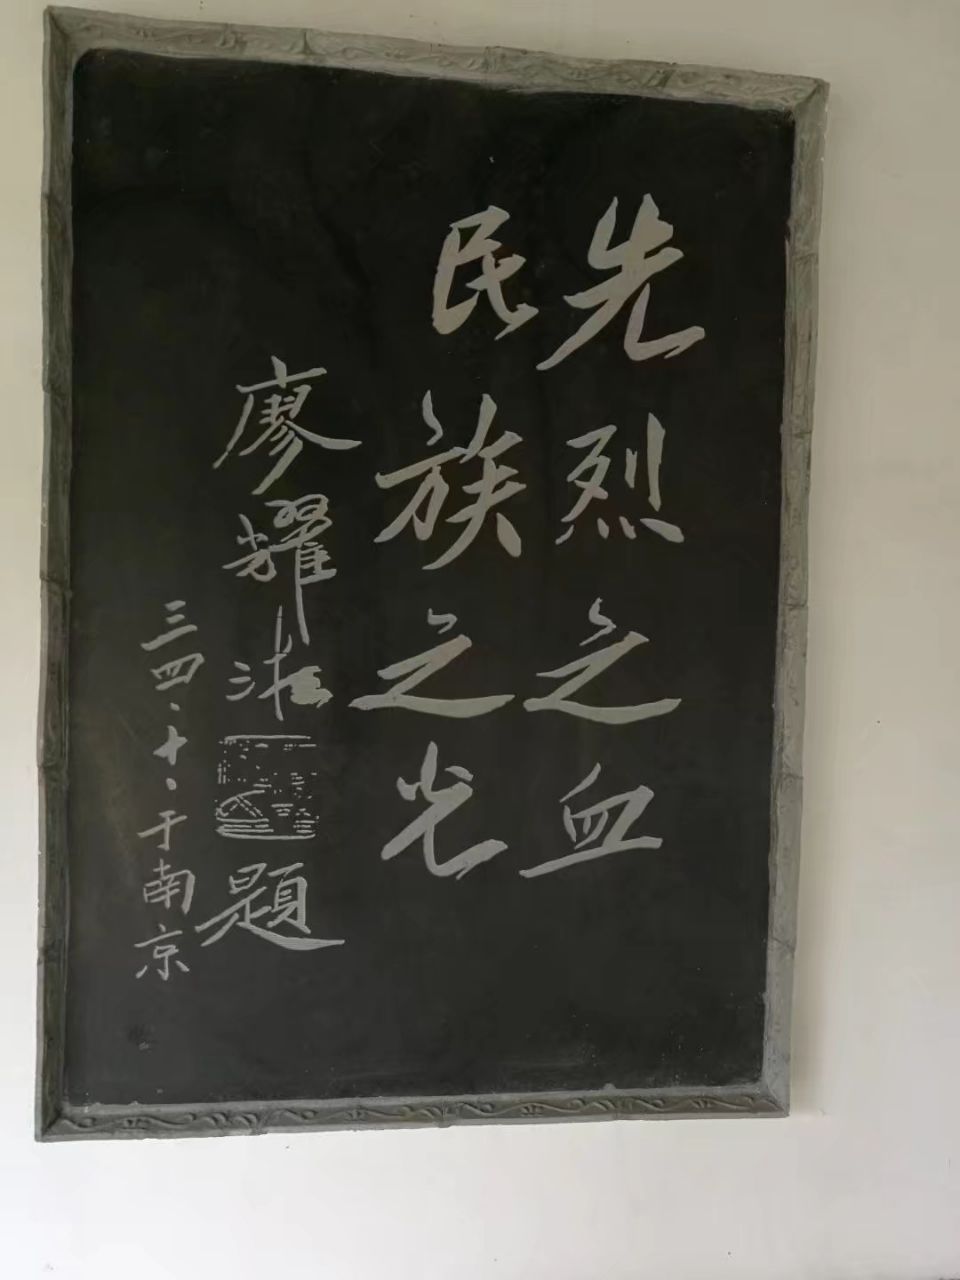 先烈之血
民族之光
廖耀湘題
三四、十、于南京